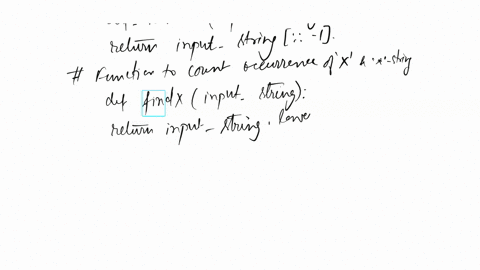 return input_string [::-1].
# Function to count occurrence of 'X' string
def findX (input_string):
return input_string.